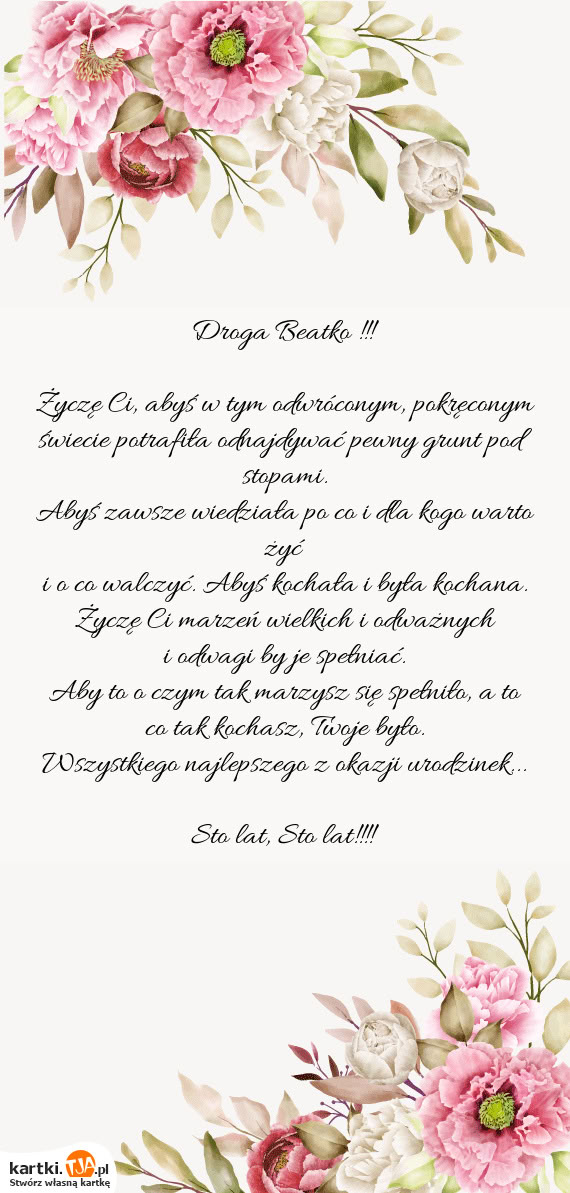 Droga Beatko !!!
Życzę Ci, abyś w tym odwróconym, pokręconym
świecie potrafiła odnajdywać pewny grunt pod
stopami.
Abyś zawsze wiedziała po co i dla kogo warto
żyć
i o co walczyć. Abyś kochała i była kochana.
Życzę Ci marzeń wielkich i odważnych
i odwagi by je spełniać.
Aby to o czym tak marzysz się spełniło, a to
co tak kochasz, Twoje było.
Wszystkiego najlepszego z okazji urodzinek...
Sto lat, Sto lat!!!!
kartki.TJA.pl
Stwórz własną kartkę